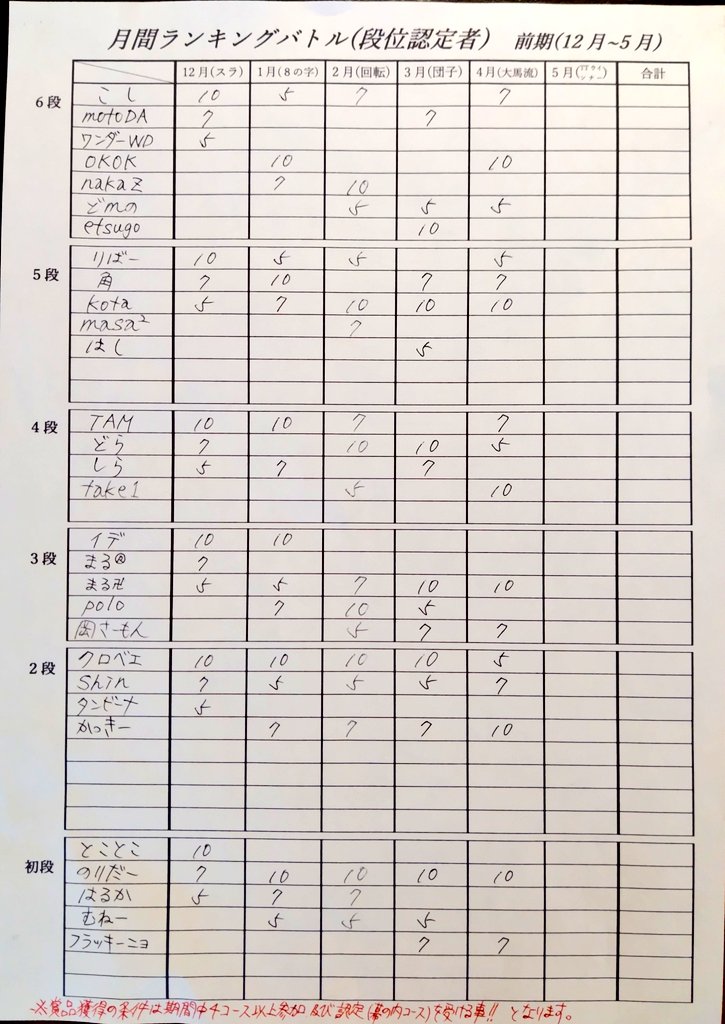 月間ランキングバトル(段位認定者) 前期(12月~5月)
12月(スラ) 1月(8の字) 2月(回転) 3月(団子) 4月(大馬流) 5月 合計
6段 こし 10 5 7 7
motoDA 7 7
ワンダーWD 5
OKOK 10 10
nakaz 7 10
どmの 5 5 5
etsugo 10
5段 りばー 10 5 5 5
角 7 10 7 7
kota 5 7 10 10 10
masa² 7
はし 5
4段 TAM 10 10 7 7
どら 7 10 10 5
しら 5 7 7
take1 5 10
3段 イデ 10 10
まる 7
まる卍 5 5 7 10 10
polo 7 10 5
岡さーもん 5 7 7
2段 クロベエ 10 10 10 10 5
Shin 7 5 5 5 7
タンビーナ 5
かっきー 7 7 7 10
初段 とことこ 10
のりだー 7 10 10 10 10
はるか 5 7 7
むねー 5 5 5
フラッキーニョ 7 7
※賞品獲得の条件は期間中4コース以上参加及び認定(幕の内コース)を受ける事!! となります。